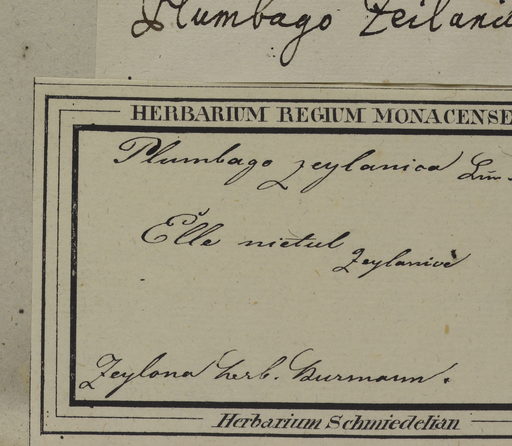 Plumbago Zeilanic
HERBARIUM REGIUM MONACENSE
Plumbago zeylanica Lin.
Elle nietul
Zeylanicè
Zeylona herb. Burmann.
Herbarium Schmiedelian